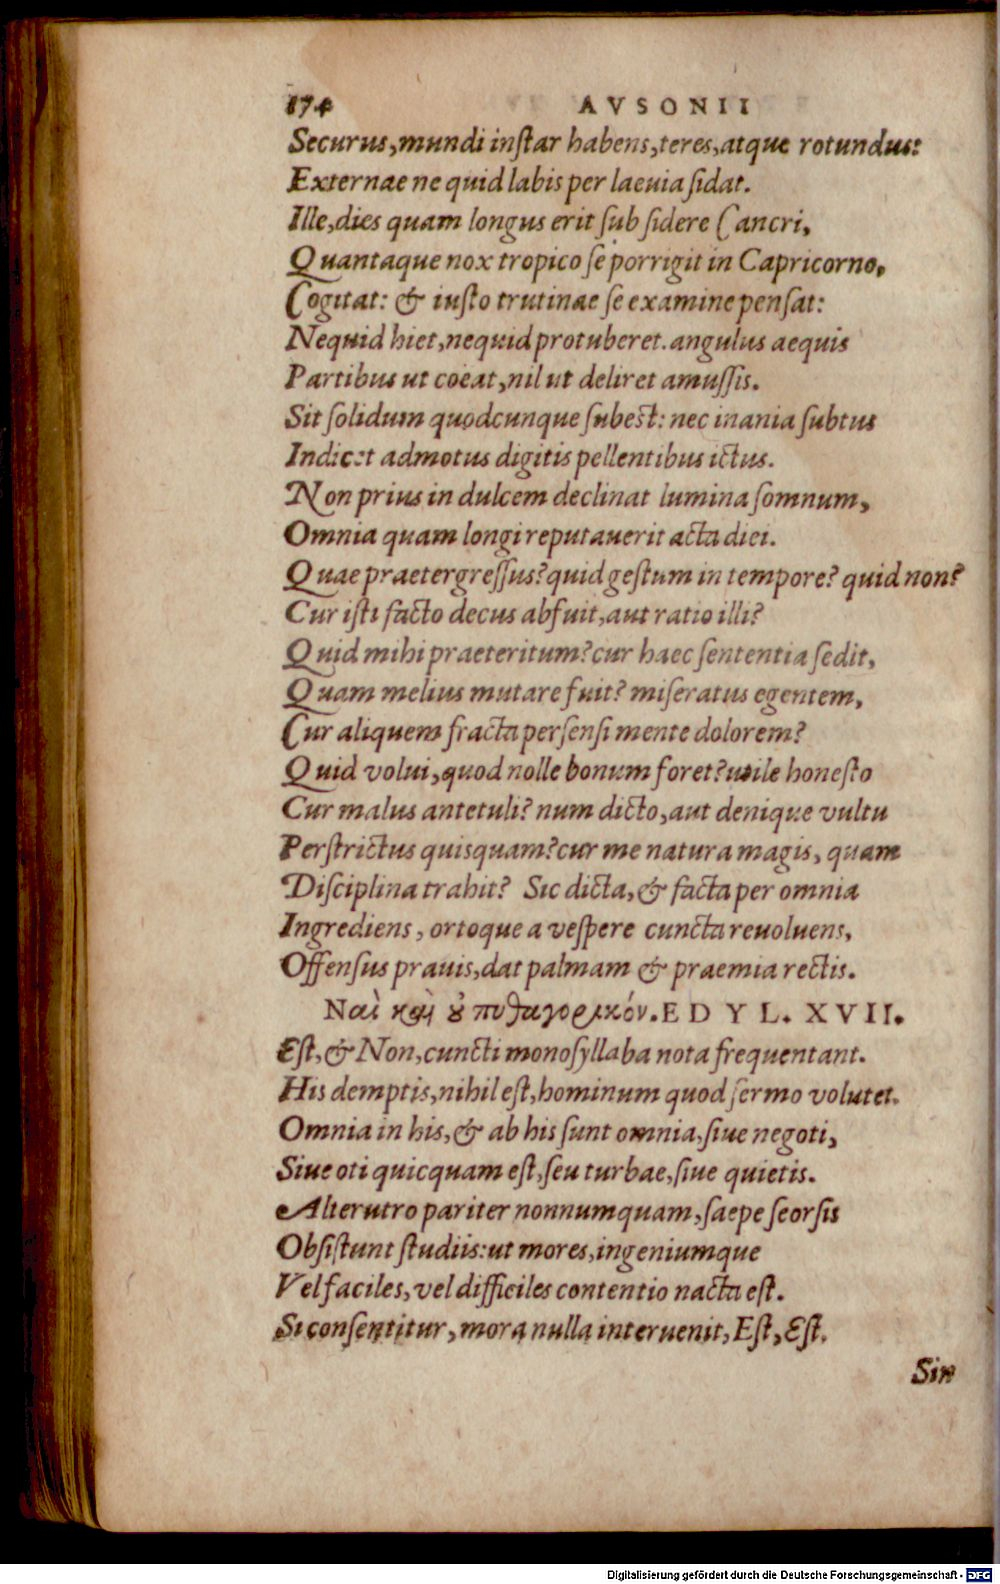 174 AVSONII
Securus, mundi instar habens, teres, atque rotundus:
Externae ne quid labis per laeuia sidat.
Ille, dies quam longus erit sub sidere Cancri,
Quantaque nox tropico se porrigit in Capricorno,
Cogitat: & iusto trutinae se examine pensat:
Nequid hiet, nequid protuberet. angulus aequis
Partibus ut coëat, nil ut deliret amussis.
Sit solidum quodcunque subest: nec inania subtus
Indicet admotus digitis pellentibus ictus.
Non prius in dulcem declinat lumina somnum,
Omnia quam longi reputauerit acta diei.
Quae praetergressus? quid gestum in tempore? quid non?
Cur isti facto decus abfuit, aut ratio illi?
Quid mihi praeteritum? cur haec sententia sedit,
Quam melius mutare fuit? miseratus egentem,
Cur aliquem fracta persensi mente dolorem?
Quid volui, quod nolle bonum foret? utile honesto
Cur malus antetuli? num dicto, aut denique vultu
Perstrictus quisquam? cur me natura magis, quam
Disciplina trahit? Sic dicta, & facta per omnia
Ingrediens, ortoque a vespere cuncta reuoluens,
Offensus prauis, dat palmam & praemia rectis.
Ναὶ καὶ οὐ πυθαγορικόν. EDYL. XVII.
Est, & Non, cuncti monosyllaba nota frequentant.
His demptis, nihil est, hominum quod sermo volutet.
Omnia in his, & ab his sunt omnia, siue negoti,
Siue oti quicquam est, seu turbae, siue quietis.
Alterutro pariter nonnumquam, saepe seorsis
Obsistunt studiis: ut mores, ingeniumque
Vel faciles, vel difficiles contentio nacta est.
Si consentitur, mora nulla interuenit, Est, Est.
Sin
Digitalisierung gefördert durch die Deutsche Forschungsgemeinschaft - DFG